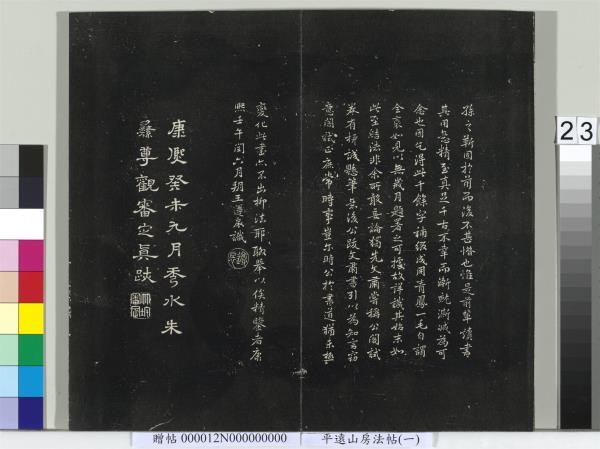 孫之靳固於前而後不甚惜也唯是前輩讀書
其用意精至真足千古不幸而漸就澌滅為可
念也因乞得此十餘字補綴成冊青鳳一毛自謂
全裒如見以無歲月題署之可據故詳識其始末如
此至結法非余所敢妄論獨先文肅嘗稱公閣試
卷有柳誠懸筆矣後公跋文肅書引以為知言竊
意閣試正庶常時事豈爾時公於書道猶未極
變化此書亦不出柳法耶聊舉以俟精鑒者康
熙壬午閏六月朔王遵扆識
康熙癸未九月秀水朱
彝尊觀審定真跡
23
贈帖 000012N000000000
平遠山房法帖(一)